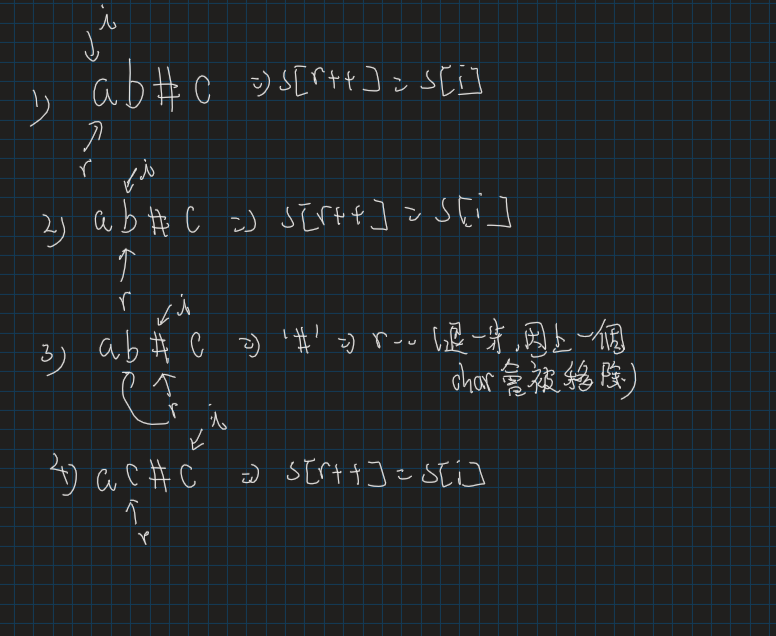 i
1) ab#c => s[r++] = s[i]
r
i
2) ab#c => s[r++] = s[i]
r
i
3) ab#c => '#' => r-- (退一來,因上一個
char會被移除)
r
i
4) ac#c => s[r++] = s[i]
r